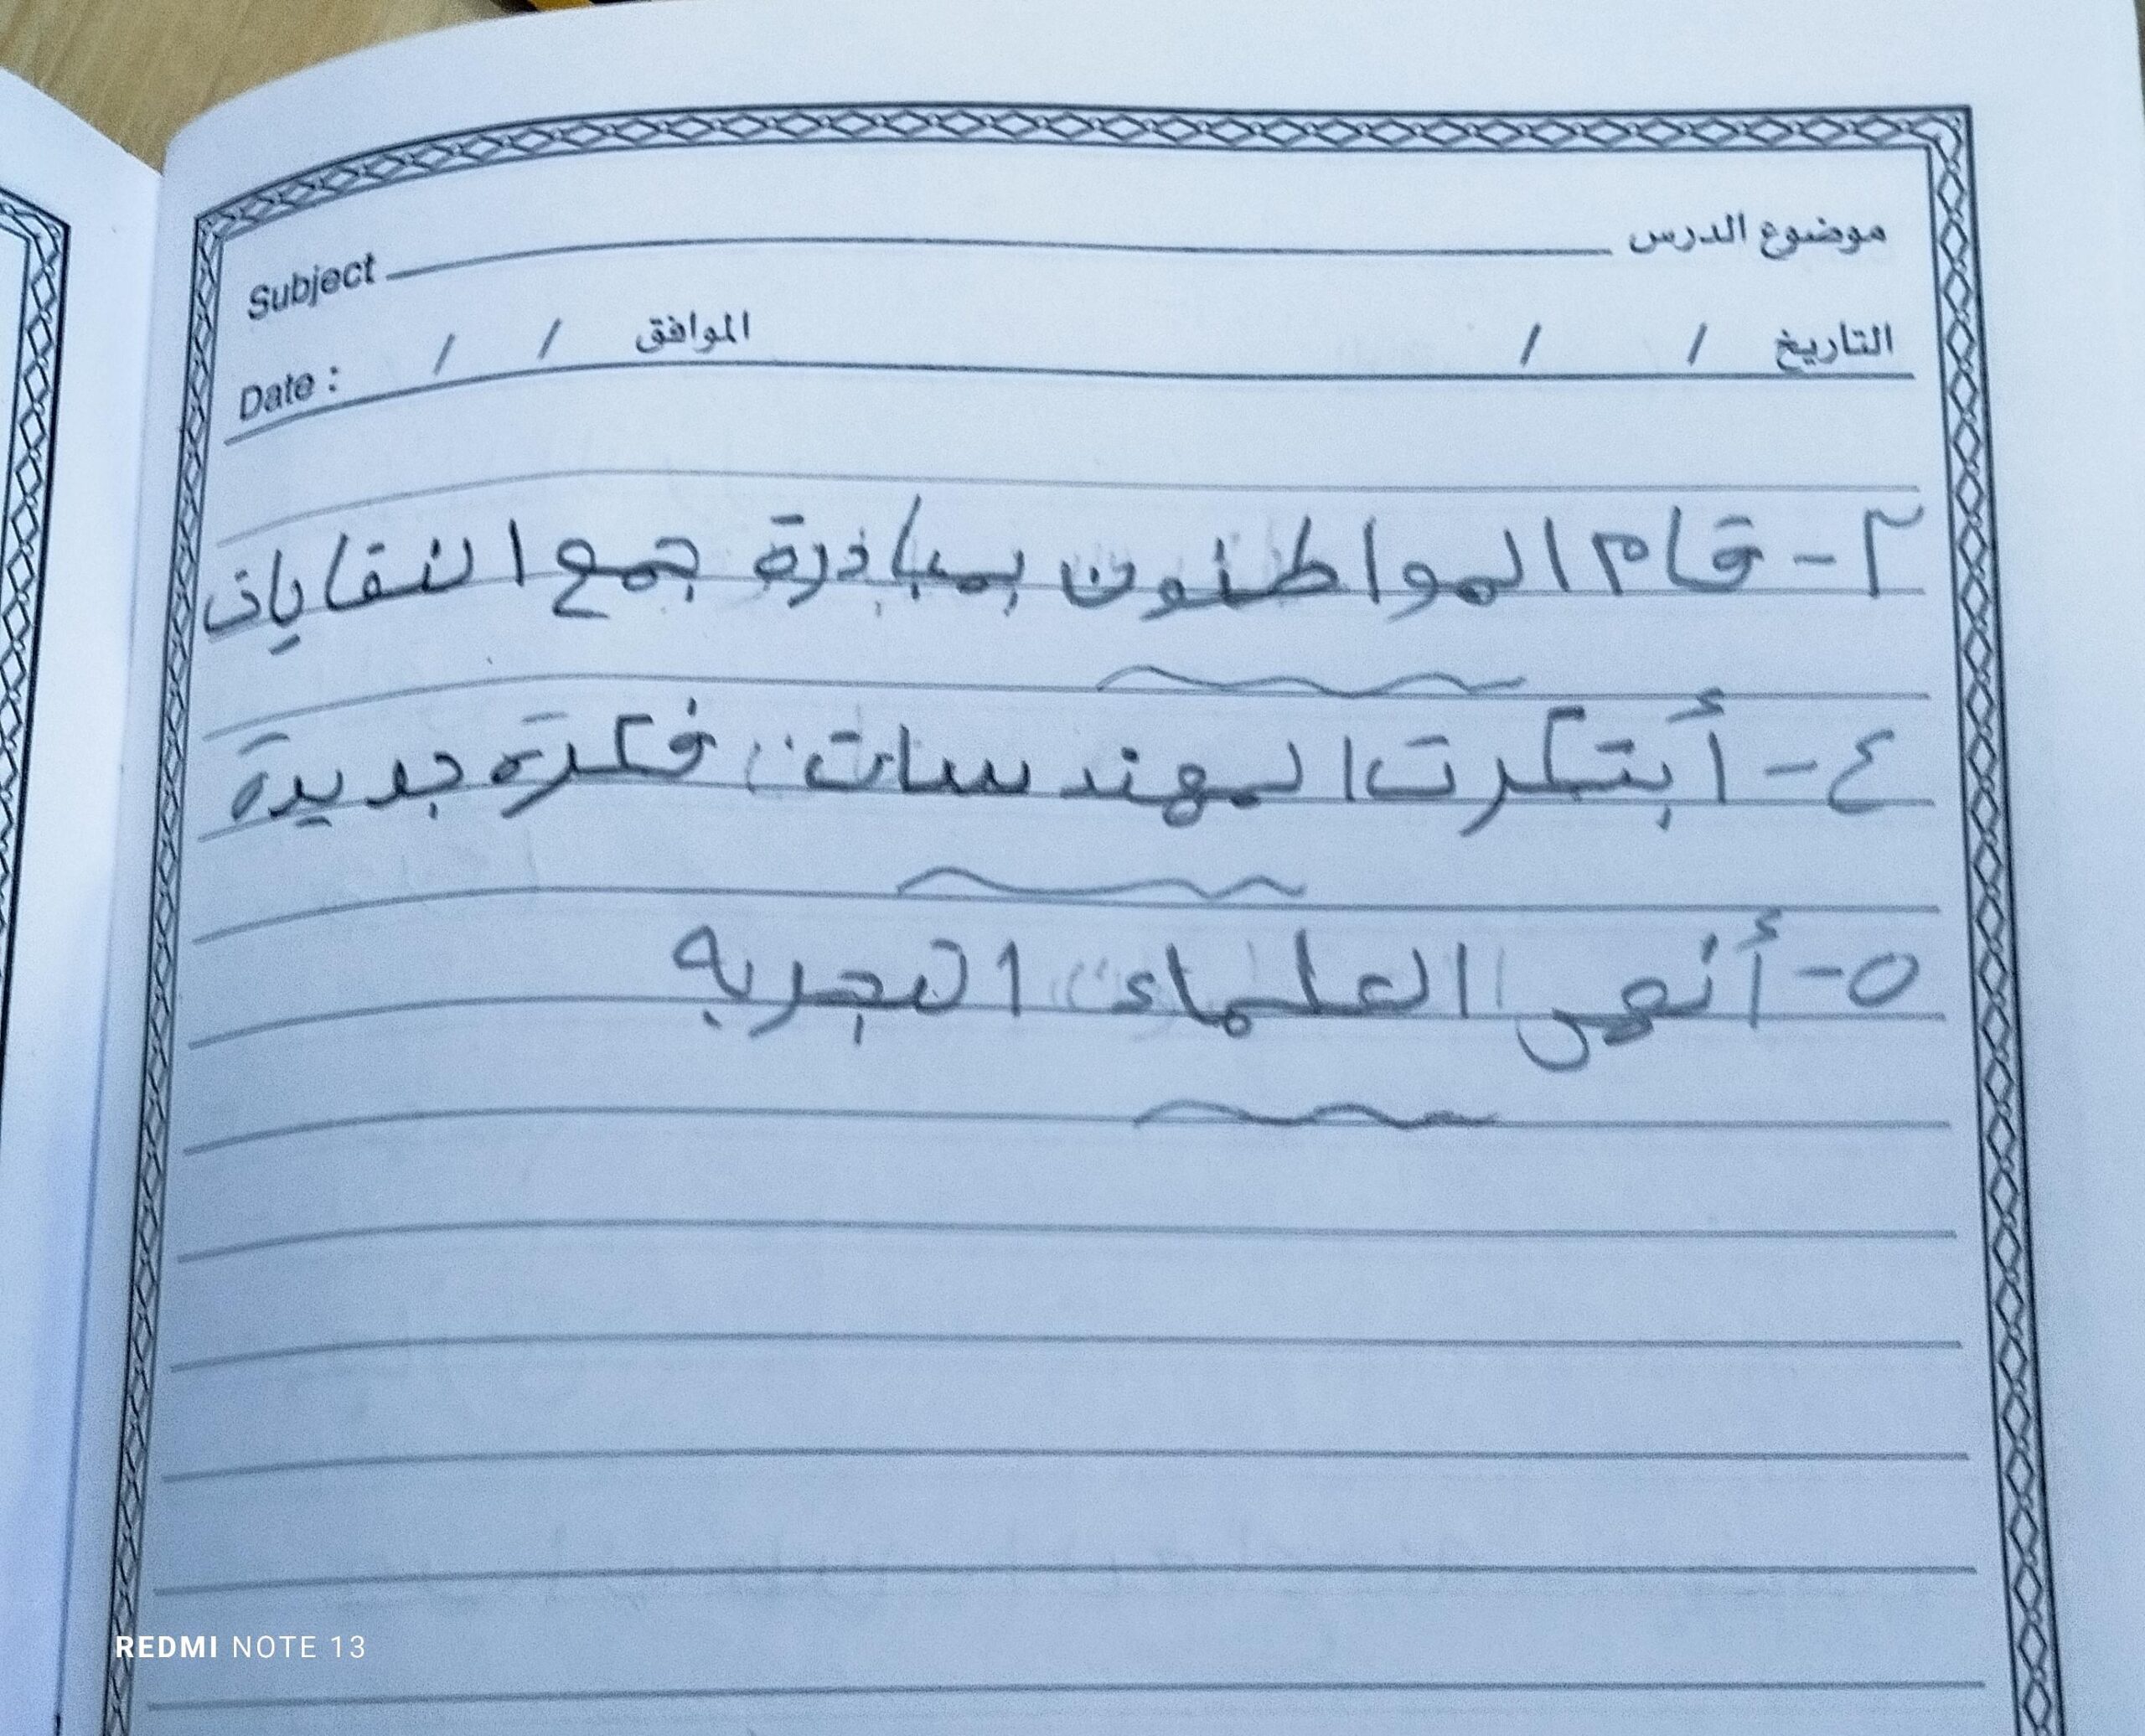 موضوع الدرس Subject
التاريخ / / الموافق / / Date :
٢- قام المواطنون بمبادرة جمع النقايات
٤- أبتكرت المهندسات فكرة جديدة
٥- أنهى العلماء التجربه
REDMI NOTE 13